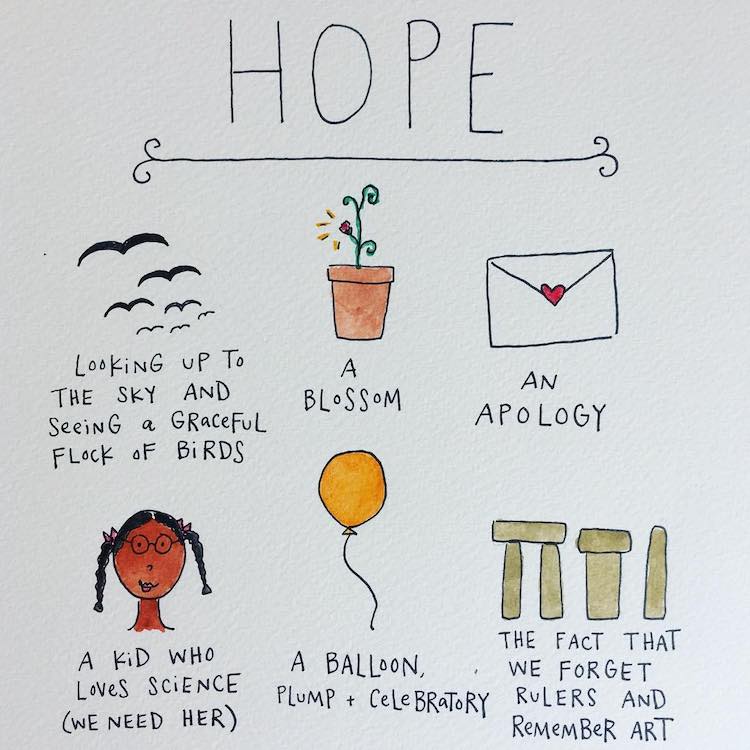 HOPE
LOOKiNG UP TO
THE SKY AND
SEEiNG a GRACEFUL
FLOCK OF BiRDS
A
BLOSSOM
AN
APOLOGY
A KiD WHO
LOVES SCiENCE
(WE NEED HER)
A BALLOON,
PLUMP + CELEBRATORY
THE FACT THAT
WE FORGET
RULERS AND
REMEMBER ART